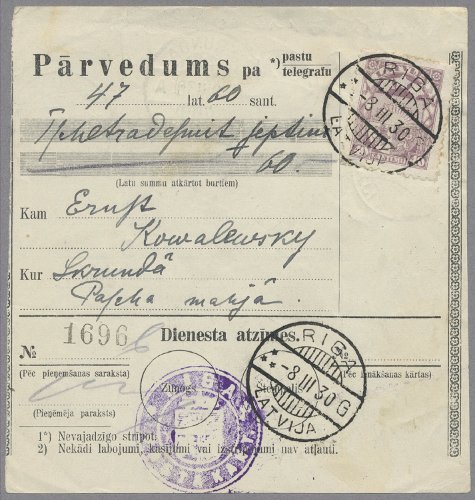 Pārvedums pa *) pastu
telegrafu
47 lat. 60 sant.
Tschetradesmit septini
60.
(Latu summu atkārtot burtiem)
Kam Ernst
Kowalewsky
Kur Skrundā
Pascha mahjā.
RIGA
-8.III.30
LATVIJA
Dienesta atzīmes.
№ 1696
(Pēc pieņemšanas saraksta)
(Pēc ienākšanas kārtas)
Zīmogs
(Pieņēmēja paraksts)
RIGA
-8.III.30 G
LATVIJA
1*) Nevajadzīgo stripot.
2) Nekādi labojumi, kasījumi vai izstrīpojumi nav atļauti.